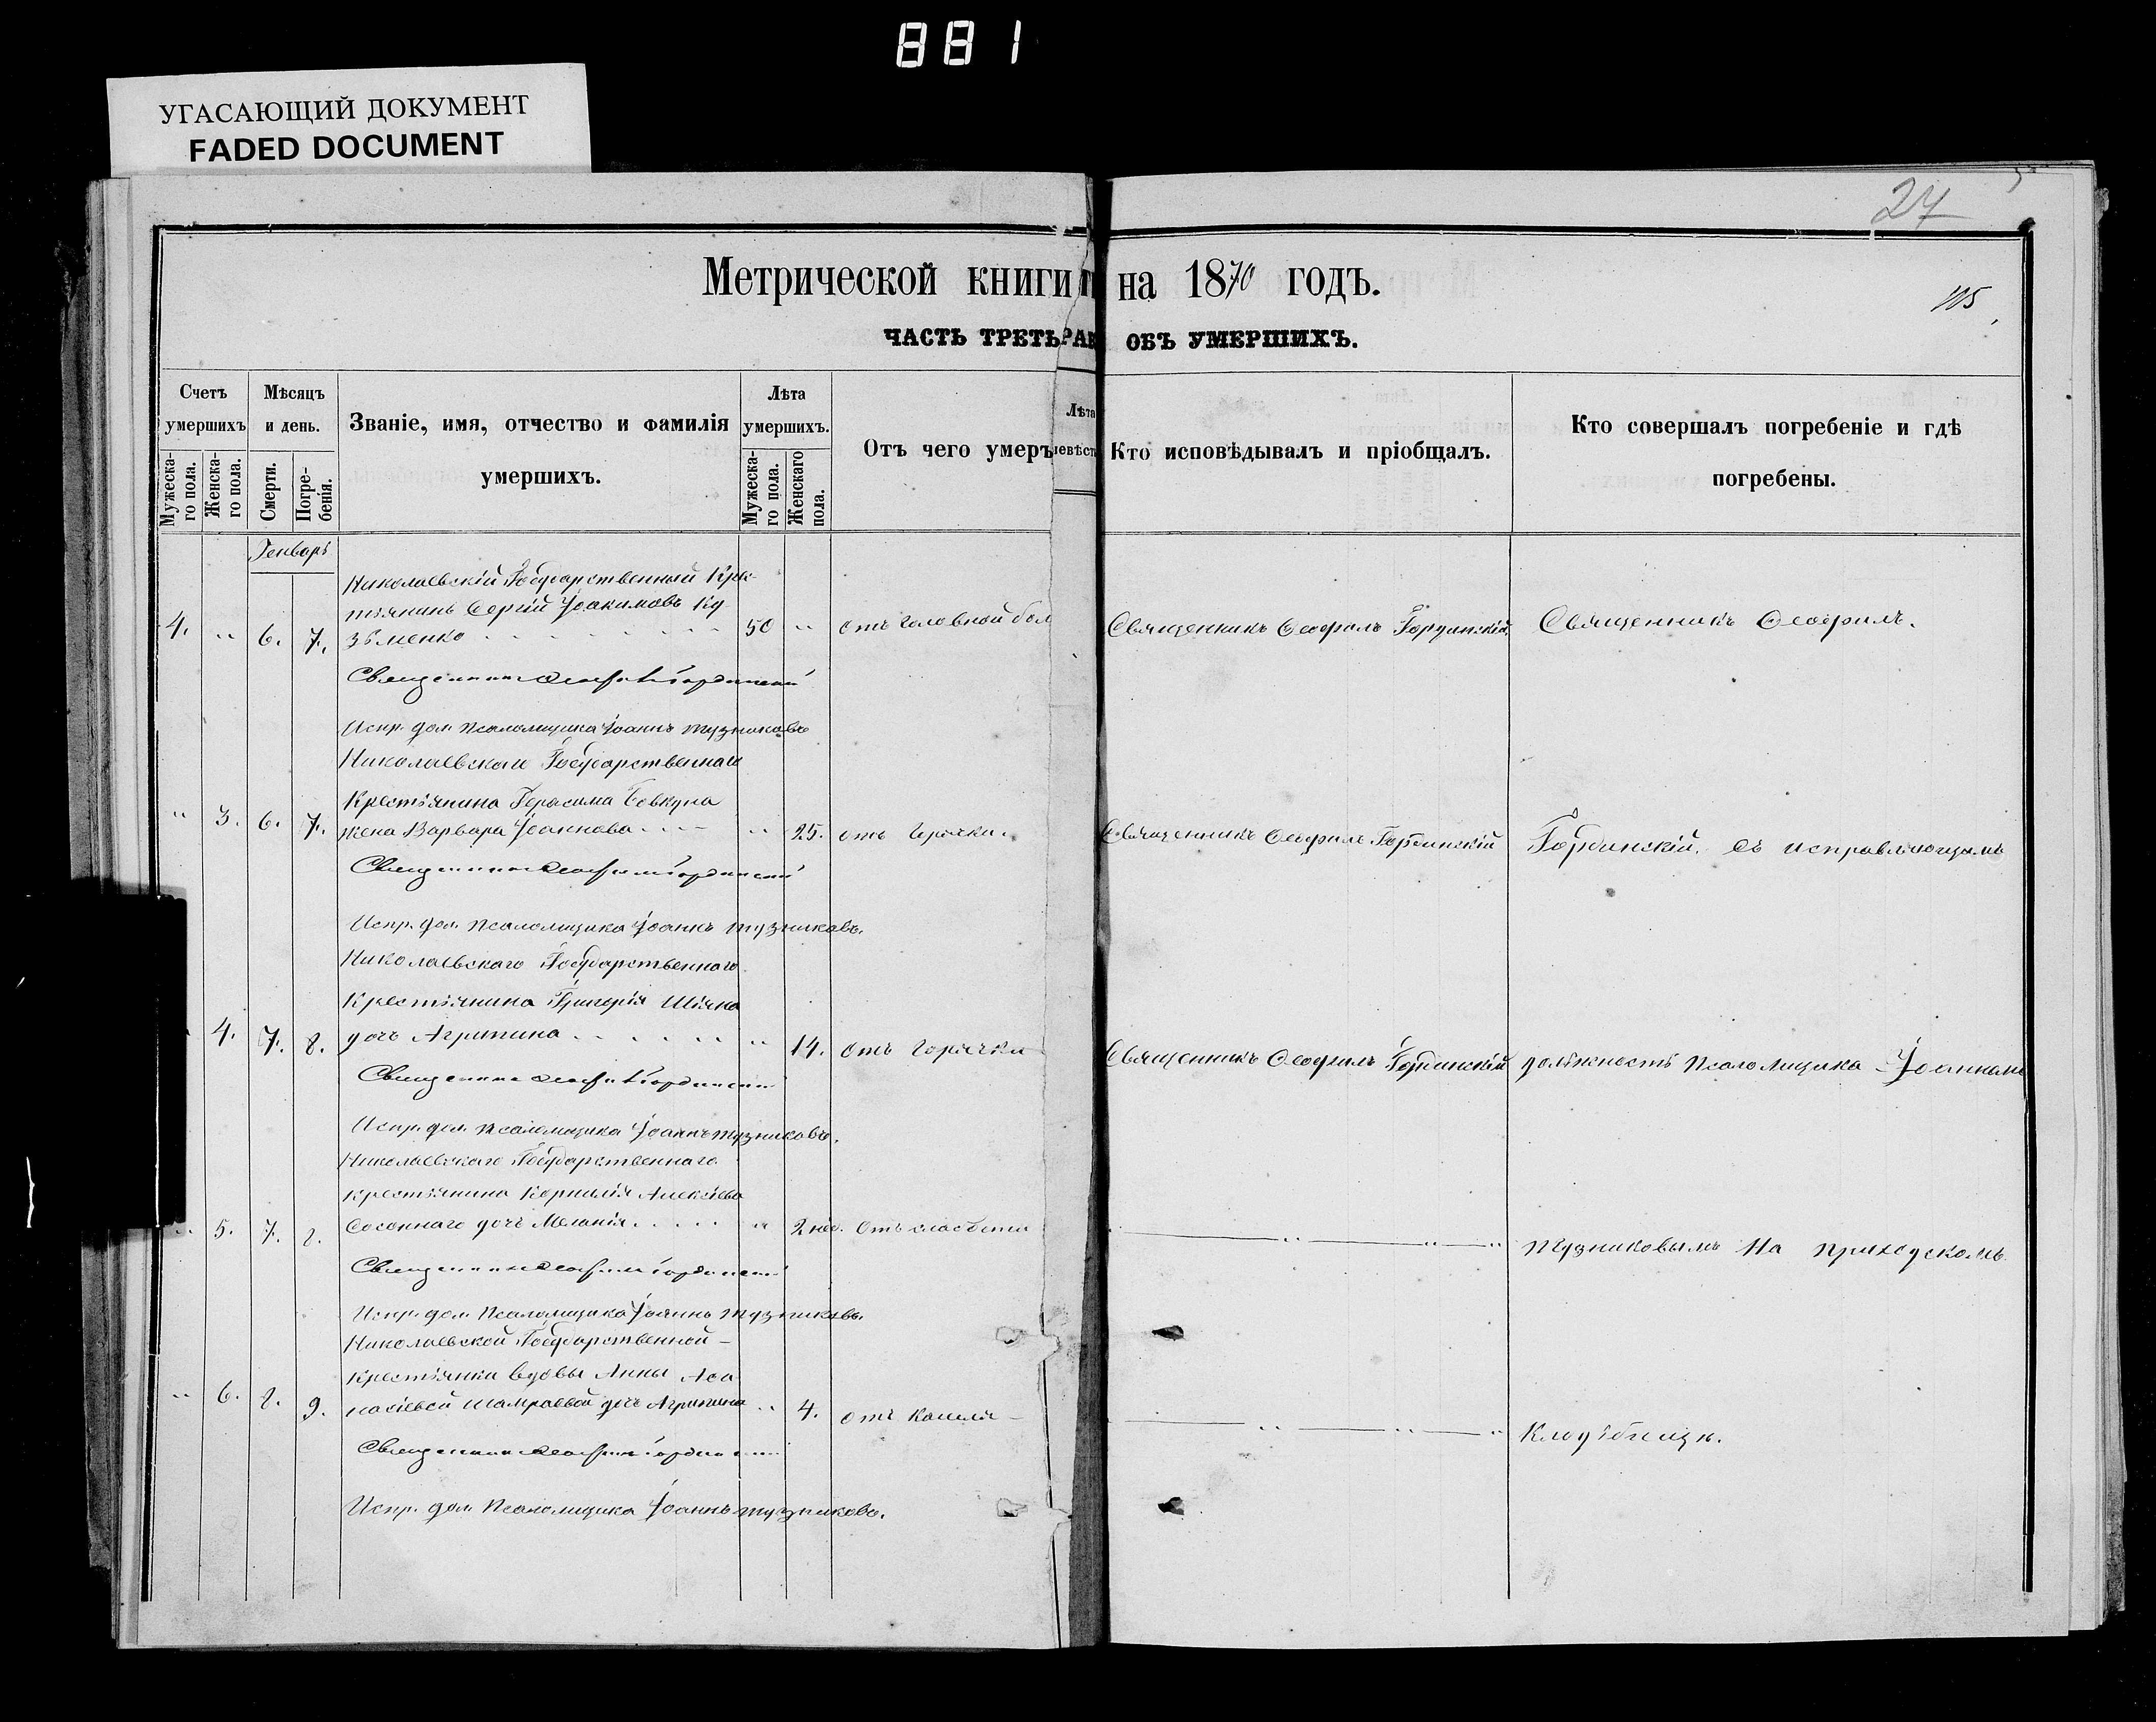 881
УГАСАЮЩИЙ ДОКУМЕНТ
FADED DOCUMENT
27
Метрической книги на 1870 годъ.
105
ЧАСТЬ ТРЕТЬ ОБЪ УМЕРШИХЪ.
Счетъ умершихъ
Мужеска-го пола.
Женска-го пола.
Мѣсяцъ и день.
Смерти.
Погре-бенія.
Званіе, имя, отчество и фамилія умершихъ.
Лѣта умершихъ.
Мужеска-го пола.
Женскаго пола.
Отъ чего умеръ
Лѣта
Кто исповѣдывалъ и пріобщалъ.
Кто совершалъ погребеніе и гдѣ погребены.
Генварь
Николаевскій Государственный Крес-
тьянинъ Сергій Іоакимовъ Ку
4. " 6. 7. зьменко 50 " отъ головной бол Священникъ Ѳеофилъ Гординскій Священникъ Ѳеофилъ.
Священникъ Ѳеофилъ Гординскій
Испр. дол. Псаломщика Іоаннъ Тузниковъ
Николаевскаго Государственнаго
Крестьянина Герасима Бовкуна
" 3. 6. 7. жена Варвара Іоаннова " 25. отъ Горячки. Священникъ Ѳеофилъ Гординскій Гординскій. съ исправляющимъ
Священникъ Ѳеофилъ Гординскій
Испр. дол. Псаломщика Іоаннъ Тузниковъ.
Николаевскаго Государственнаго
Крестьянина Григорія Шіяна
4. 7. 8. дочь Агрипина " 14. отъ Горячки Священникъ Ѳеофилъ Гординскій должность Псаломщика Іоанномъ
Священникъ Ѳеофилъ Гординскій
Испр. дол. Псаломщика Іоаннъ Тузниковъ.
Николаевскаго Государственнаго
крестьянина Корнилія Алексіева
" 5. 7. 8. дочь Меланія " 2 нед. Отъ слабости " " Тузниковымъ На приходскомъ
Священникъ Ѳеофилъ Гординскій
Испр. дол. Псаломщика Іоаннъ Тузниковъ.
Николаевской Государственной
Крестьянки вдовы Анны
" 6. 8. 9. дочь Агрипина " 4. отъ Кашля " " " Кладбищѣ.
Священникъ Ѳеофилъ Гординскій
Испр. дол. Псаломщика Іоаннъ Тузниковъ.